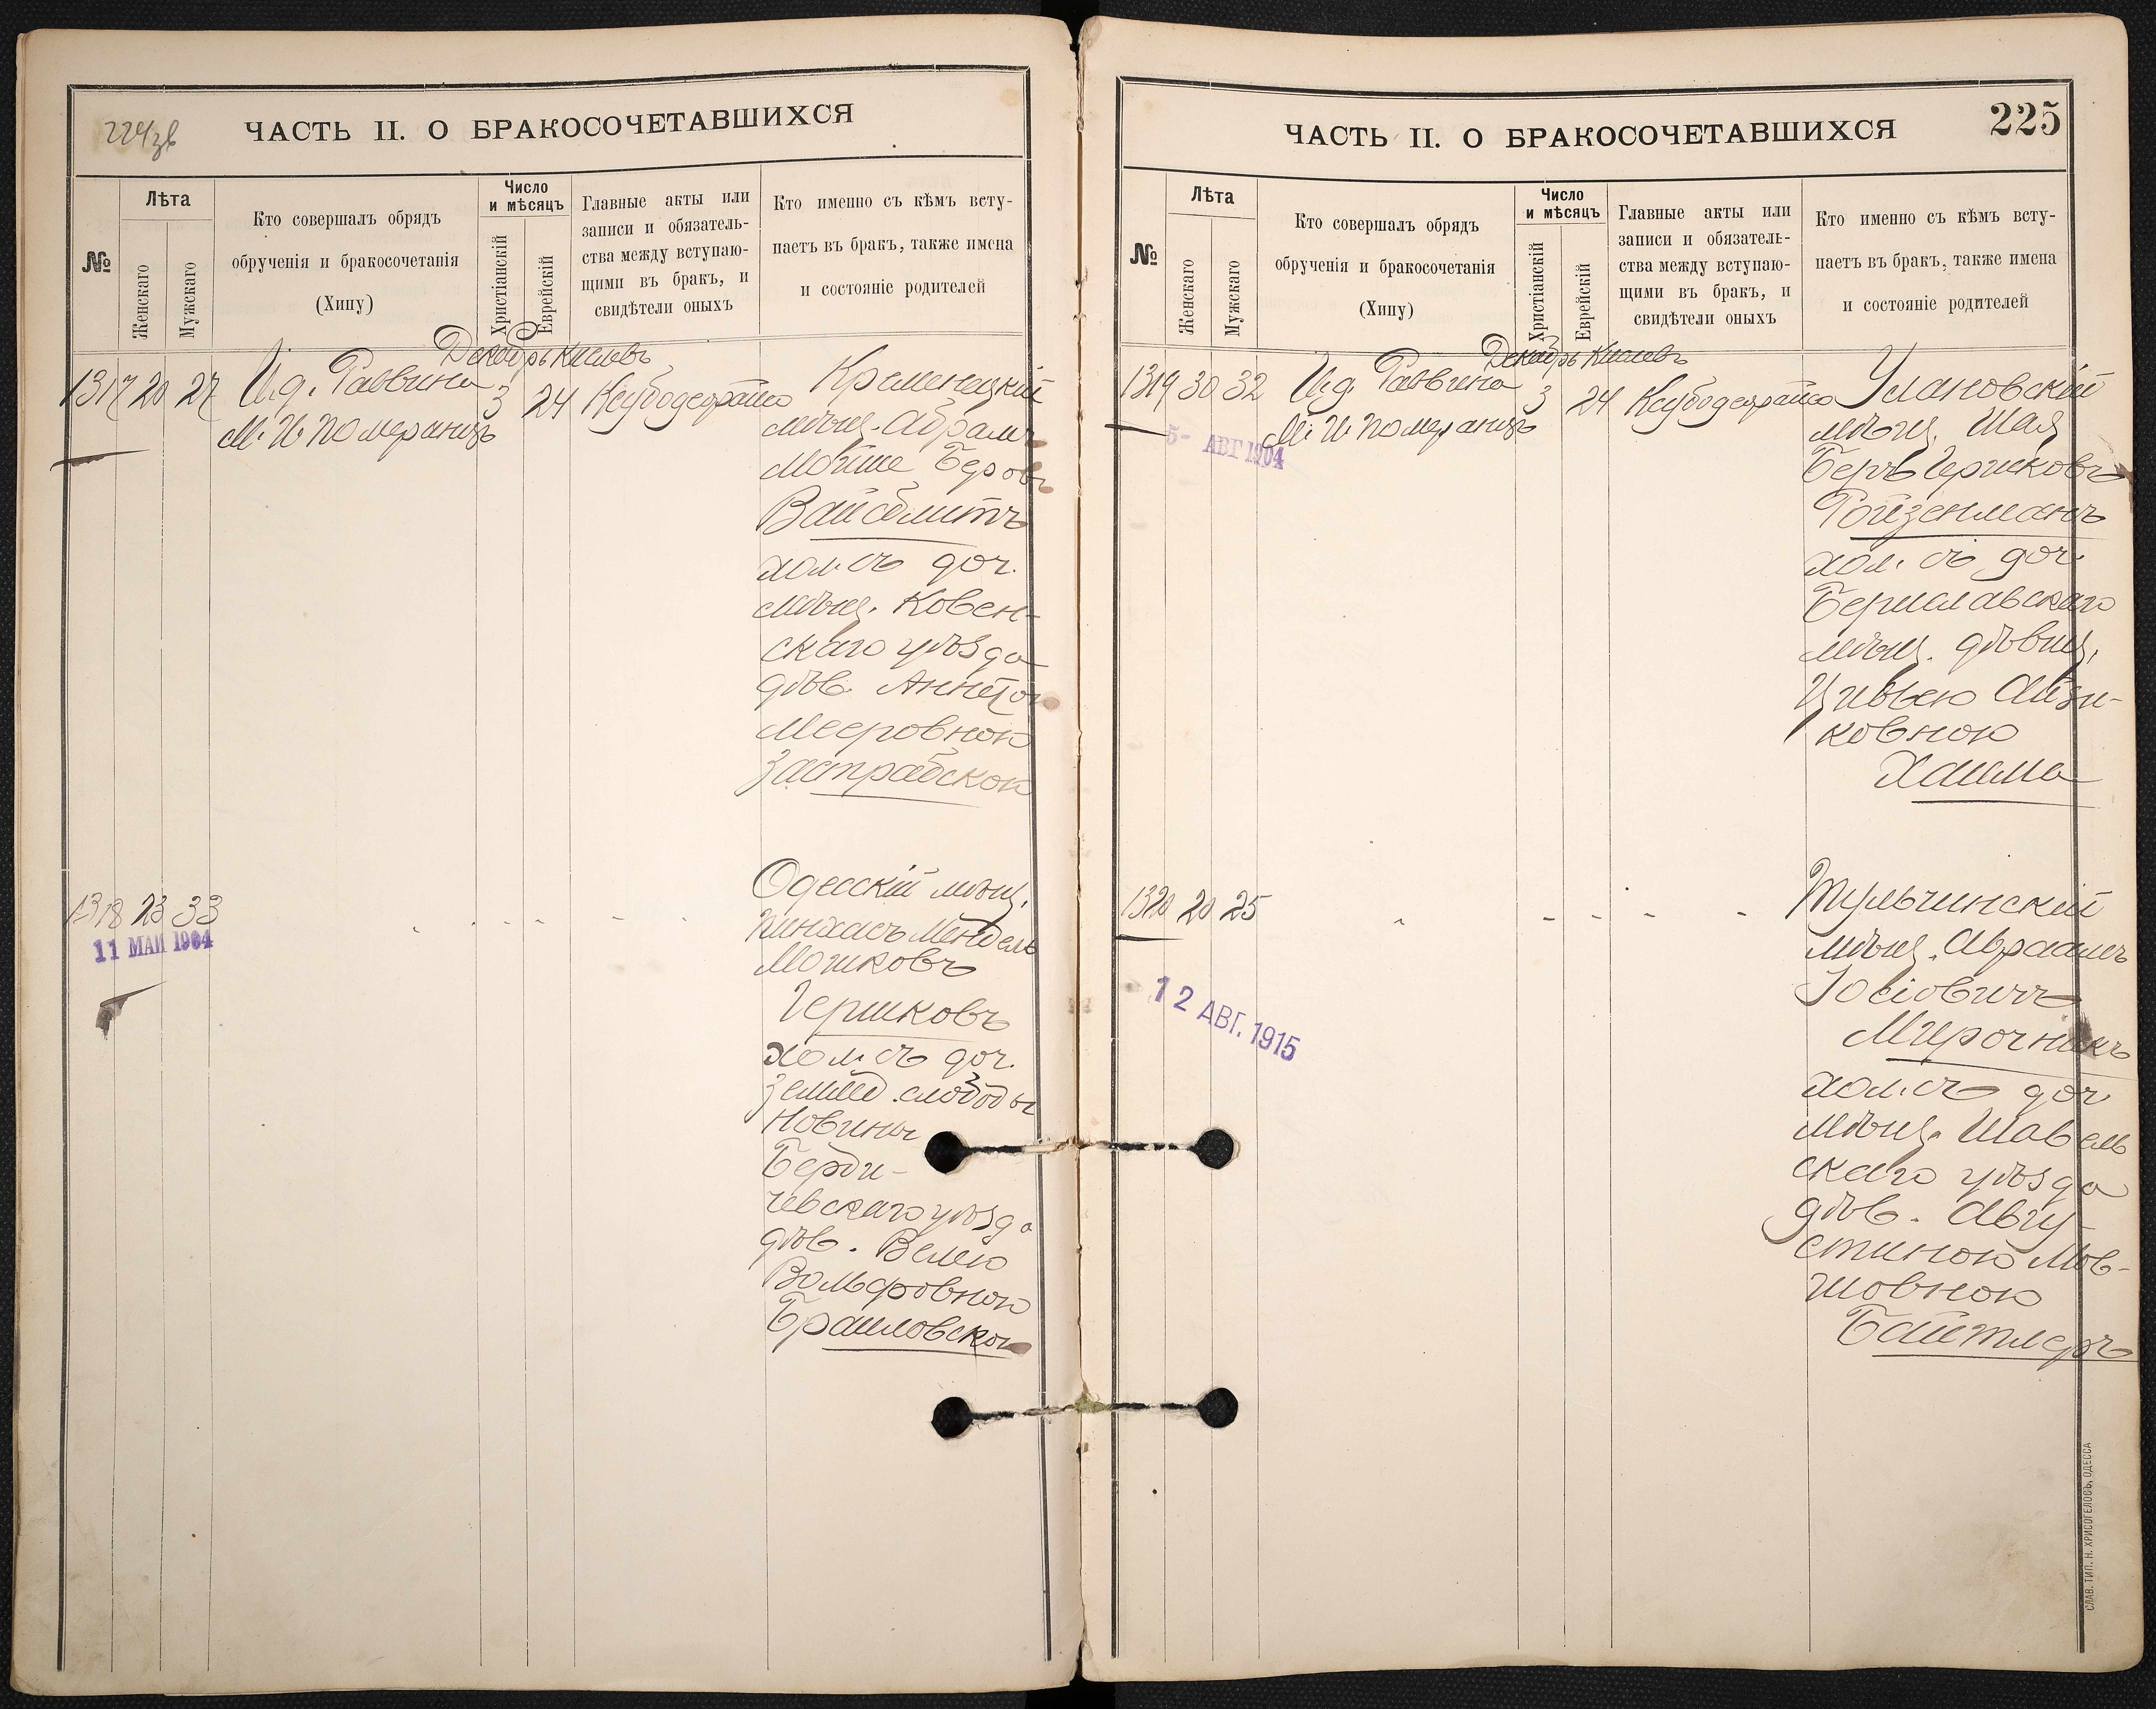 224 зв
ЧАСТЬ II. О БРАКОСОЧЕТАВШИХСЯ
№
Лѣта
Женскаго
Мужскаго
Кто совершалъ обрядъ
обрученія и бракосочетанія
(Хипу)
Число
и мѣсяцъ
Христіанскій
Еврейскій
Главные акты или
записи и обязатель-
ства между вступаю-
щими въ бракъ, и
свидѣтели оныхъ
Кто именно съ кѣмъ всту-
паетъ въ бракъ, также имена
и состояніе родителей
Декабрь Кислевъ
1317 20 27 И. д. Раввина 3 24 Ксубодеорайсо
М. И. Померанцъ
Кременецкій
мѣщ. Абрамъ
Мойше Беровъ
Вайсблитъ
хол. съ доч.
мѣщ. Ковен-
скаго уѣзда
дѣв. Аннетою
Мееровною
Застрабскою
1318 23 33
11 МАИ 1904
Одесскій мѣщ.
Пинхасъ Мендель
Мошковъ
Гершковъ
хол. съ доч.
землед. слободы
Новины
Берди-
чевскаго уѣзда
дѣв. Велею
Вольфовною
Браиловскою
ЧАСТЬ II. О БРАКОСОЧЕТАВШИХСЯ
225
№
Лѣта
Женскаго
Мужскаго
Кто совершалъ обрядъ
обрученія и бракосочетанія
(Хипу)
Число
и мѣсяцъ
Христіанскій
Еврейскій
Главные акты или
записи и обязатель-
ства между вступаю-
щими въ бракъ, и
свидѣтели оныхъ
Кто именно съ кѣмъ всту-
паетъ въ бракъ, также имена
и состояніе родителей
Декабрь Кислевъ
1319 30 32 И. д. Раввина 3 24 Ксубодеорайсо
М. И. Померанцъ
5- АВГ 1904
Улановскій
мѣщ. Шая
Беръ Гершковъ
Ройзенманъ
хол. съ доч.
Бериславскаго
мѣщ. дѣвиц.
Цивьею Айзи-
ковною
Хаима
1320 20 25
12 АВГ. 1915
Тульчинскій
мѣщ. Авраамъ
Іосіовичъ
Мирочникъ
хол. съ доч
мѣщ. Шавель
скаго уѣзда
дѣв. Авгу-
стиною Мов-
шовною
Байтлеръ
СЛАВ. ТИП. Н. ХРИСОГЕЛОСЪ, ОДЕССА